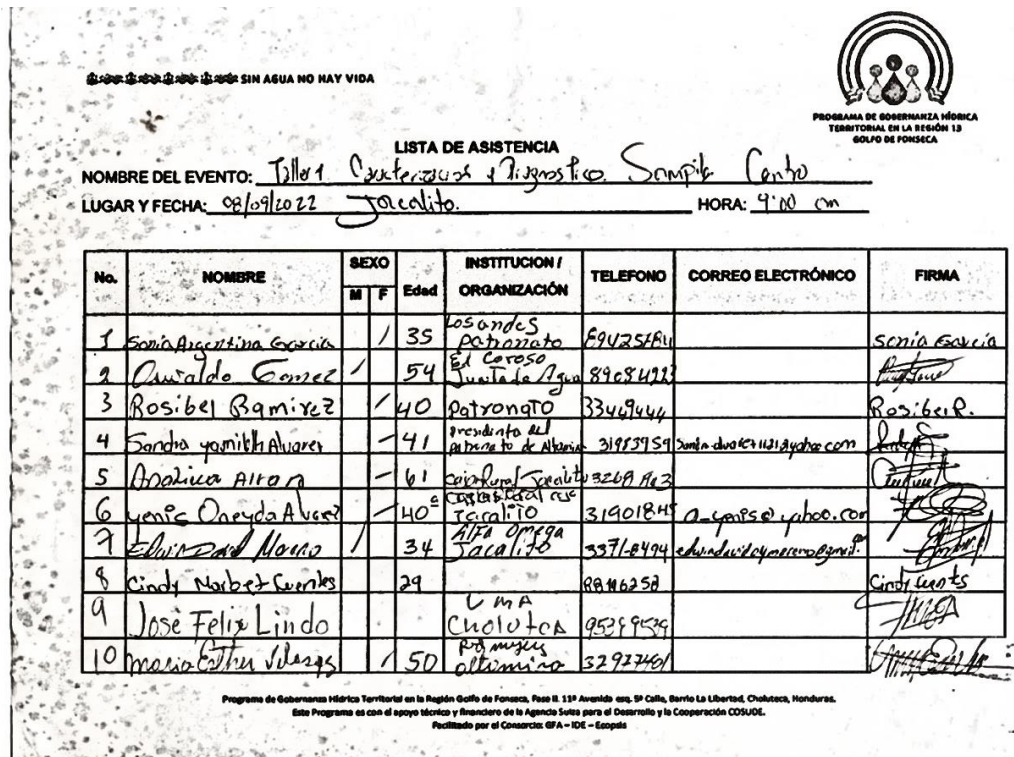 SIN AGUA NO HAY VIDA
PROGRAMA DE GOBERNANZA HÍDRICA
TERRITORIAL EN LA REGIÓN 13
GOLFO DE FONSECA
LISTA DE ASISTENCIA
NOMBRE DEL EVENTO: Taller 1 Diagnostico Sampile Centro
LUGAR Y FECHA: 08/09/2022 Jocalito. HORA: 9:00 am
No. NOMBRE SEXO Edad INSTITUCION / ORGANIZACIÓN TELEFONO CORREO ELECTRÓNICO FIRMA
M F
1 Sonia Argentina Garcia / 35 Los andes patronato Sonia Garcia
2 Oswaldo Gomez / 54 El Coroso Junta de Agua
3 Rosibel Ramirez / 40 Patronato 33449444 Rosibel R.
4 Sandra yamileth Alvarez - 41 presidenta del patronato de Altamira 31983959
5 - 61 Caja Rural Jocalito
6 yenis Oneyda Alvarez - 40 Jocalito a_yenis@yahoo.com
7 / 34 Alfa Omega Jocalito 3371-8494
8 Cindy Fuentes 29 Cindy Fuentes
9 José Felix Lindo UMA Choluteca
10 maria Esther / 50 altamira
Programa de Gobernanza Hídrica Territorial en la Región Golfo de Fonseca, Fase II. 11ª Avenida esq. 5ª Calle, Barrio La Libertad, Choluteca, Honduras.
Este Programa es con el apoyo técnico y financiero de la Agencia Suiza para el Desarrollo y la Cooperación COSUDE.
Facilitado por el Consorcio: GFA – IDE – Ecopsis